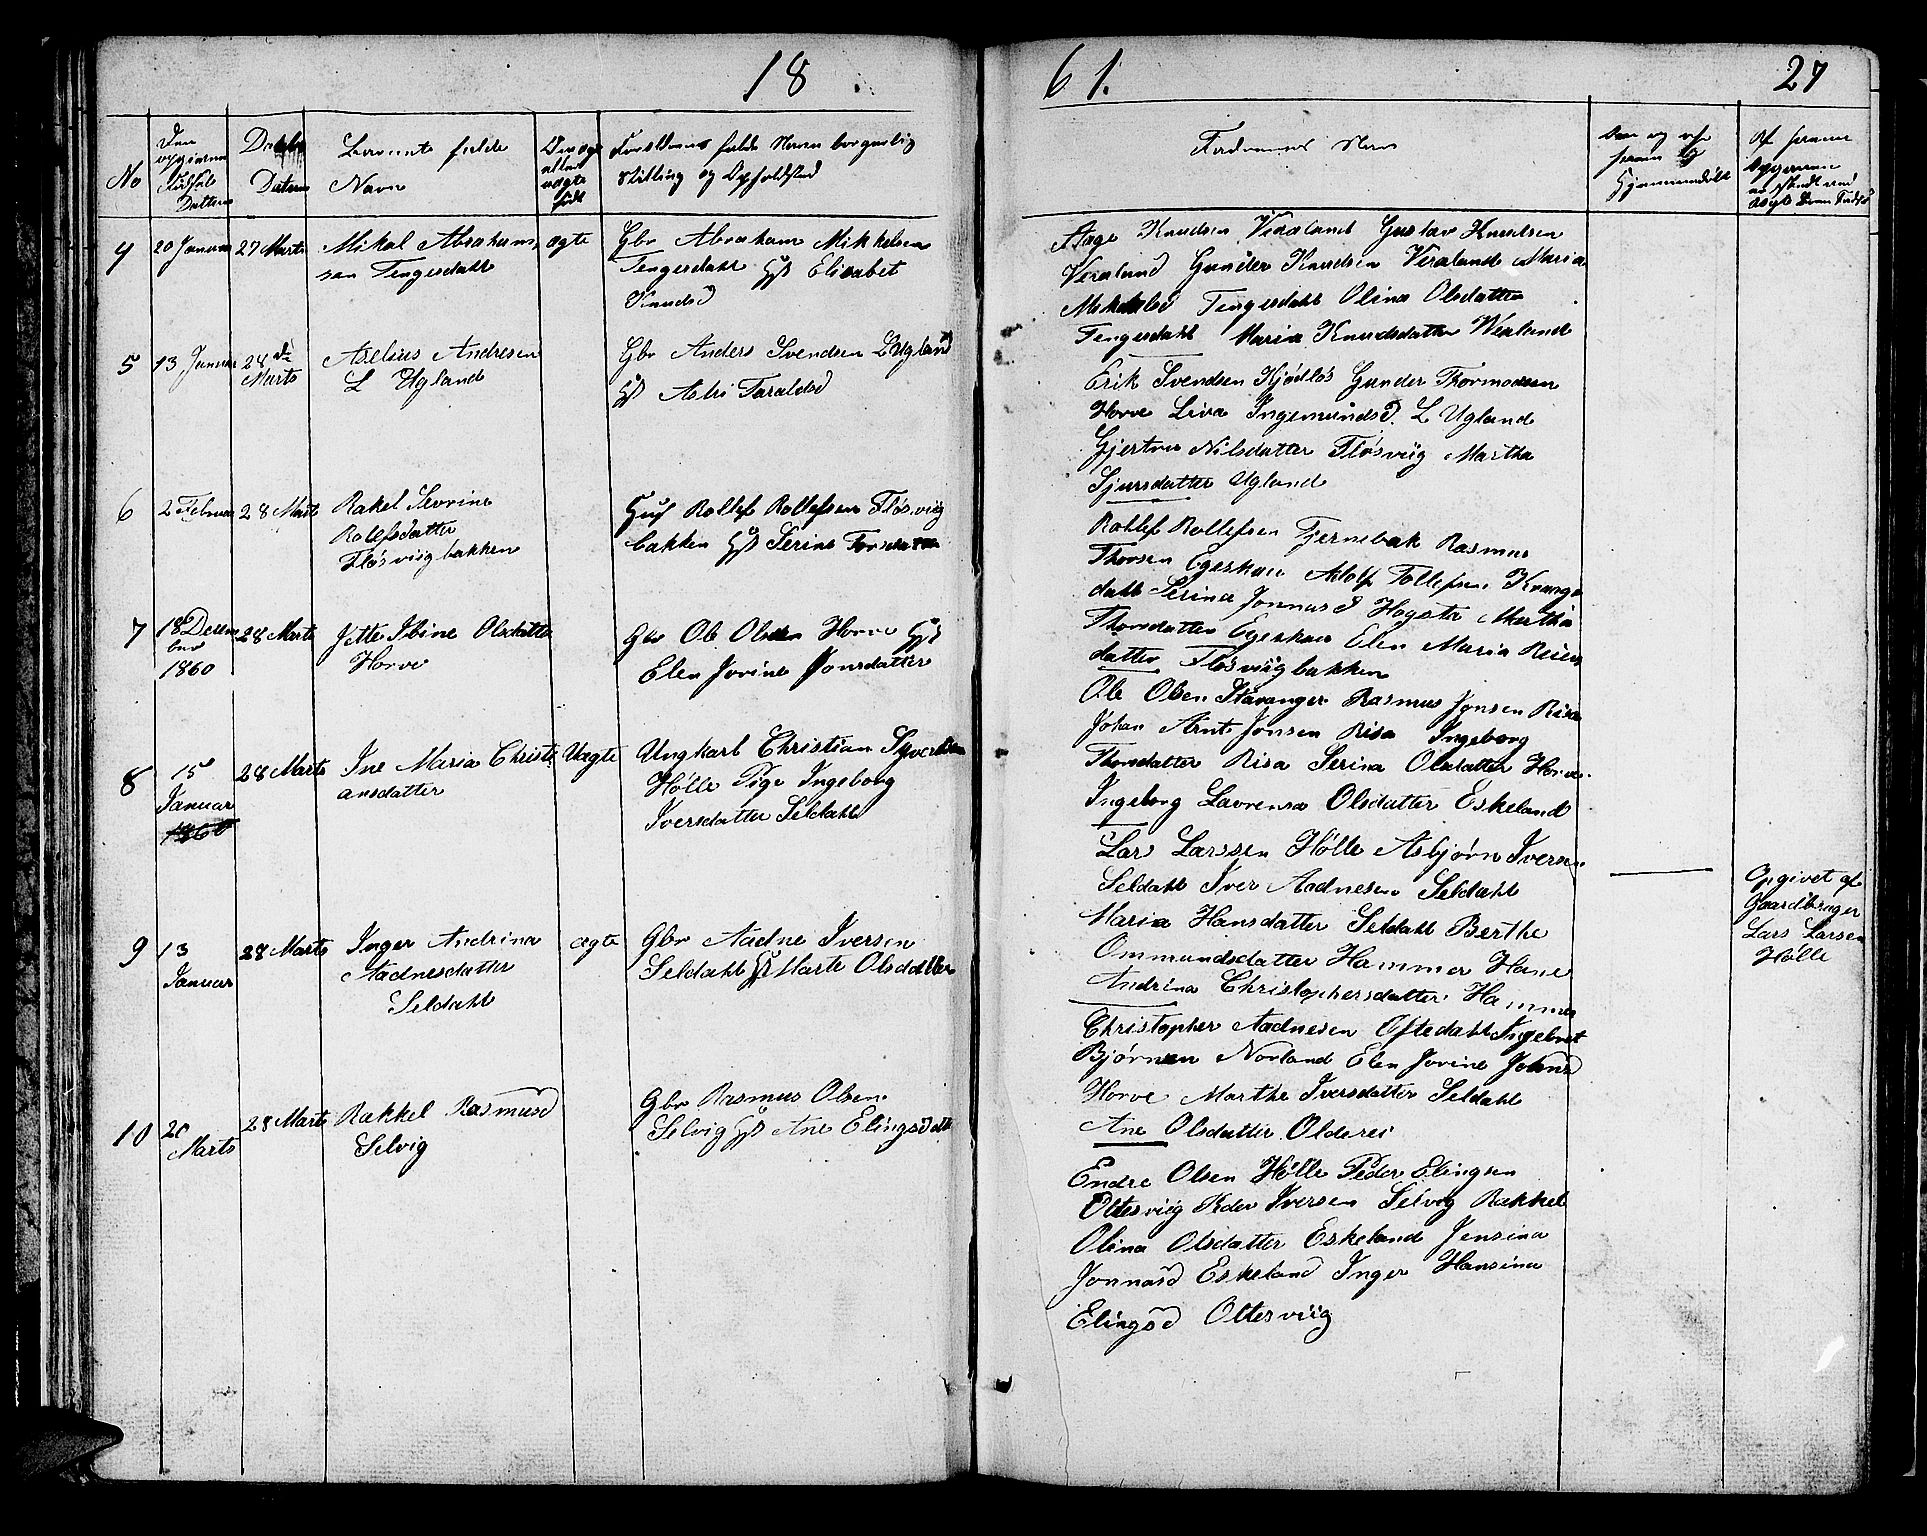 18 61. 27
No
Daabs
Datum
Barnets fulde
Navn
Forældrenes fulde Navn borgerlig
Stilling og Opholdsted
Faddernes Navn
4 20 Januar 27 Marts Mikal Abraham
sen Tengesdahl
ægte
Gbr Abraham Mikkelsen
Tengesdahl Hst Elisabet
Knudsd
Aage Knudsen Viraland Gustav Knudsen
Viraland Gunder Knudsen Viraland Maria
Mikkelsd Tengesdahl Olina Olsdatter
Tengesdahl Maria Knudsdatter Weraland
5 13 Januar 28de
Marts
Aselius Andresen
L Ugland
Gbr Anders Svendsen L Ugland
Hst Astri Taraldsd
Erik Svendsen Kjødløs Gunder Thormodsen
Horve Liva Ingemundsd. L Ugland
Gjertru Nilsdatter Fløsviig Martha
Sjursdatter Ugland
6 2 Februar 28 Marts Rakel Sevrine
Rolefsdatter
Fløsviigbakken
Huf Rollef Rollefsen Fløsviig
bakken Hst Serine Torsdatter
Rollef Rollefsen Tjernebak Rasmus
Thorsen Egeskau Adolf Tollefsen Kvange
dahl Serina Jonnasd Hogsta Martha
Thorsdatter Egeskau Elen Maria Reiers
datter Fløsviigbakken
7 18 Desem
ber
1860
28 Marts Jette Ibine Olsdatter
Horve
Gbr Ole Olsen Horve Hst
Elen Jorine Jonsdatter
Ole Olsen Stavanger Rasmus Jonsen Risa
Johan Arnt Jonsen Risa Ingeborg
Thorsdatter Risa Serina Olsdatter Horve
Ingeborg Lavrensa Olsdatter Eskeland
8 15
Januar
1860
28 Marts Ine Maria Christi
ansdatter
Uægte
Ungkarl Christian Syvertsen
Hølle Pige Ingeborg
Iversdatter Seldahl
Lars Larssen Hølle Asbjørn Iversen
Seldahl Iver Aadnesen Seldahl
Maria Hansdatter Seldahl Berthe
Ommundsdatter Hammer Hane
Andrina Christophersdatter Hammer
Opgivet af
Gaardbruger
Lars Larsen
Hølle
9 13
Januar
28 Marts Inger Andrina
Aadnesdatter
Seldahl
ægte
Gbr Aadne Iversen
Seldahl Hst Marte Olsdatter
Christopher Aadnesen Oftedahl Ingebret
Bjørnsen Norland Elen Jorine Johnsd
Horve Marthe Iversdatter Seldahl
Ane Olsdatter Olderei
10 20
Marts
28 Marts Rakkel Rasmusd
Selvig
Gbr Rasmus Olsen
Selvig Hst Ane Elingsdatt
Endre Olsen Hølle Peder Elingsen
Oltesviig Peder Iversen Selvig Rakkel
Olina Olsdatter Eskeland Jensina
Jonnasd Eskeland Inger Hansina
Elingsd Oltesviig